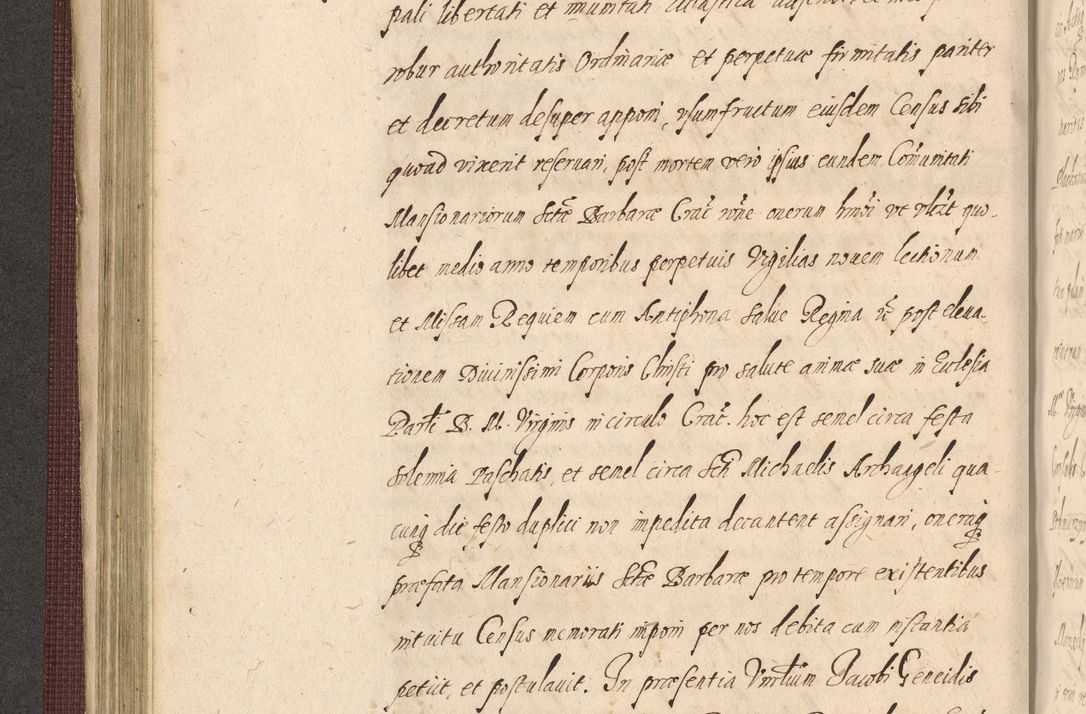 pali libertati et imunitati
robur authoritatis Ordinariæ et perpetuæ firmitatis pariter
et decretum desuper apponi, vsumfructum eiusdem Census sibi
quoad vixerit reseruari, post mortem vero ipsius eundem Com̃unitati
Mansionariorum Sctæ Barbaræ Crac̃ rõne onerum hmõi vt vtz̃t quo-
libet medio anno temporibus perpetuis Vigilias nouem lectionum
et Missam Requiem cum Antiphona Salue Regina post eleua-
tionem Diuinissimi Corporis Christi pro salute animæ suæ in Ecclesia
B. M. Virginis in circulo Crac̃. hoc est semel circa festa
solemnia Paschatis, et semel circa Scti Michaelis Archangeli qua-
cunq die festo duplici non impedita decantent assignari, oneraq
præfata Mansionariis Sctæ Barbaræ pro tempore existentibus
intuitu Census memorati imponi per nos debita cum instantia
petiit, et postulauit. In præsentia Vnrlium Jacobi Geneidis